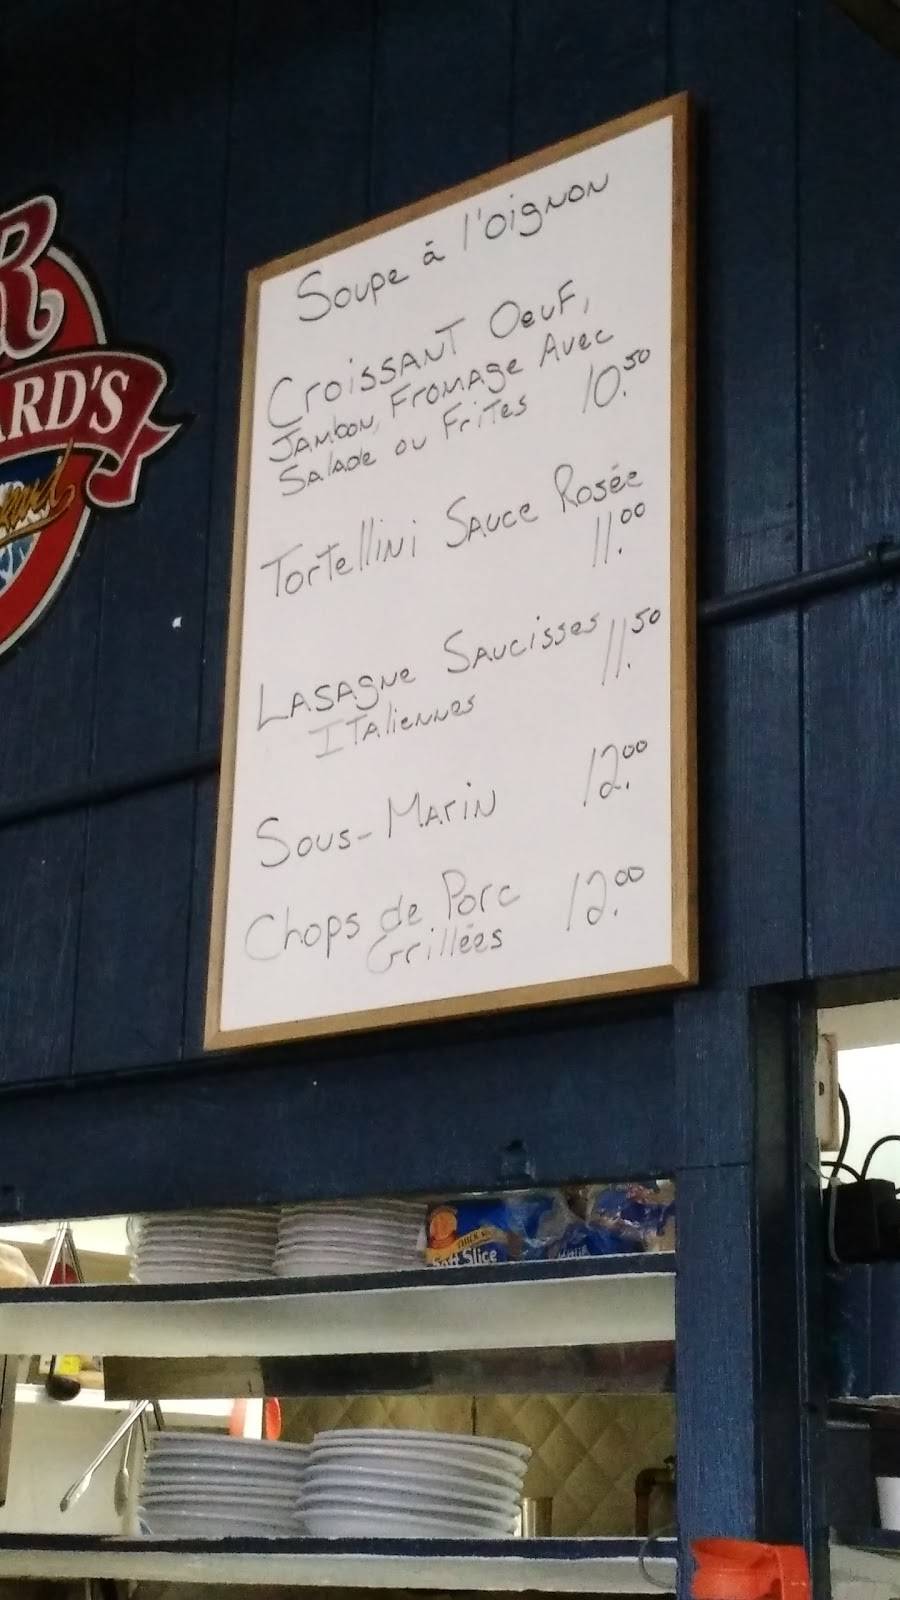 Soupe à l'oignon
Croissant Oeuf,
Jambon, Fromage Avec
Salade ou Frites 10.50
Tortellini Sauce Rosée
11.00
Lasagne Saucisses 11.50
Italiennes
Sous-Marin 12.00
Chops de Porc 12.00
Grillées
R
ARD'S
Soft Slice